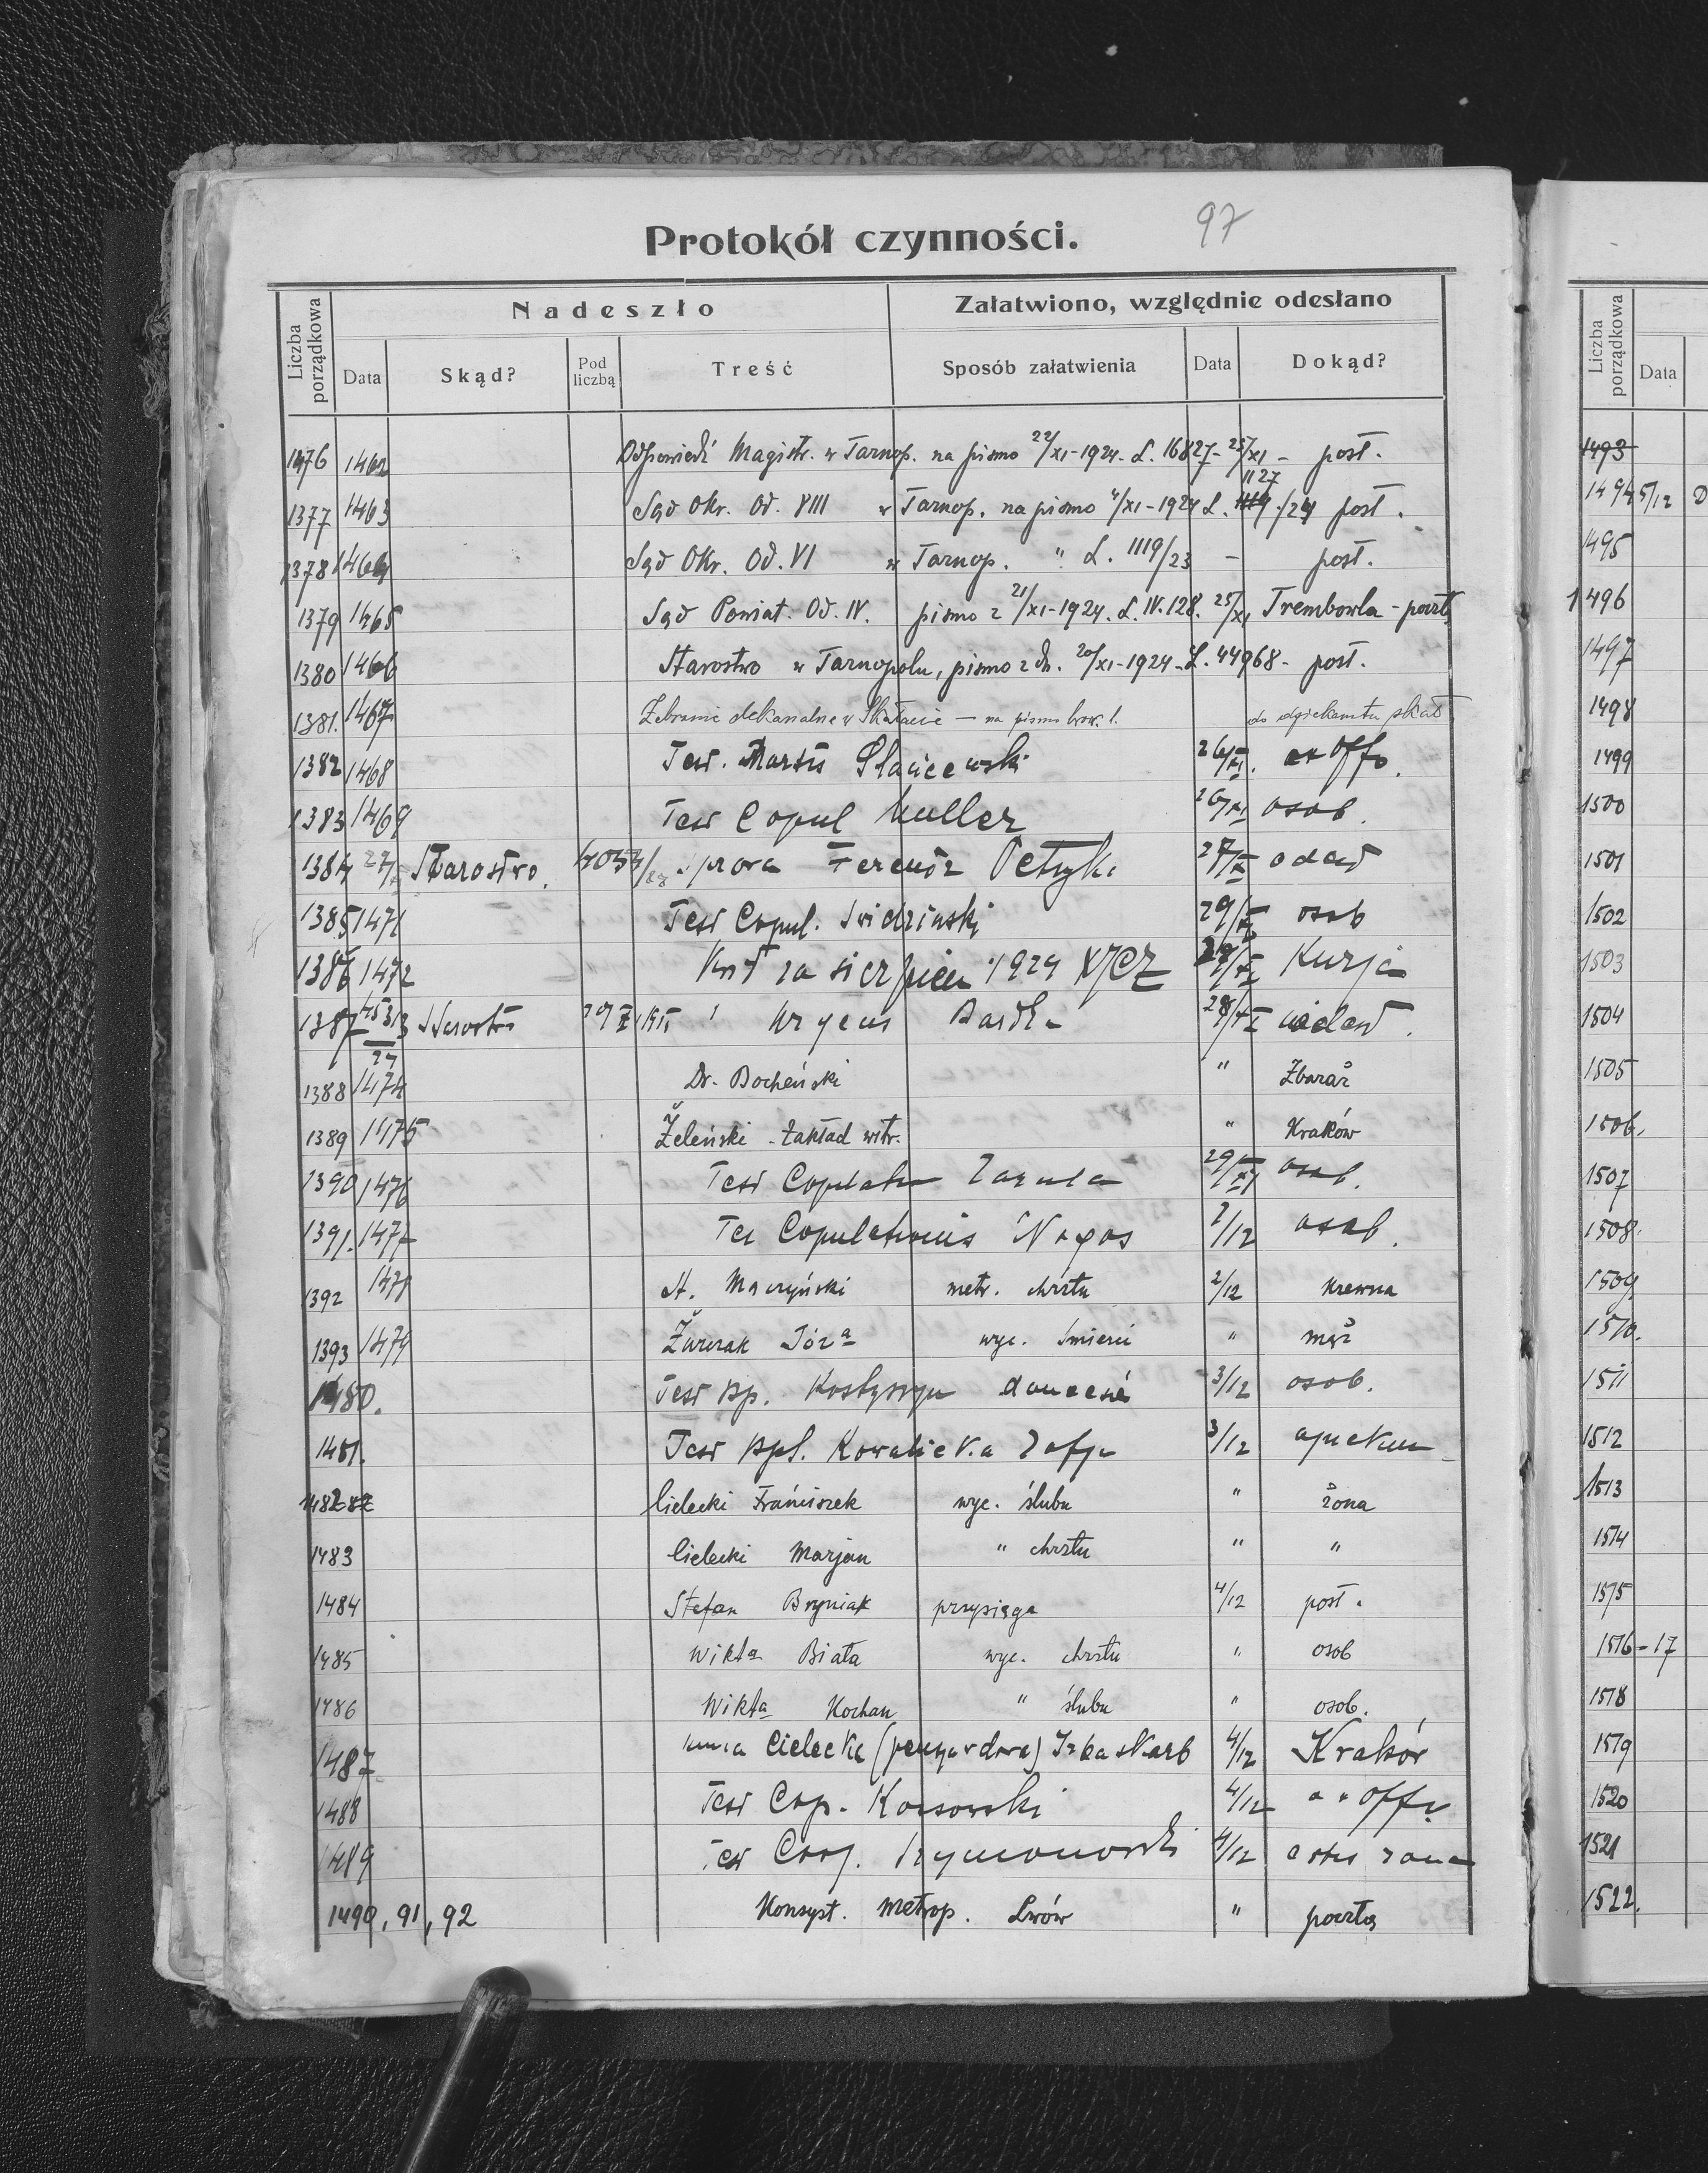 97
Protokół czynności.
Liczba porządkowa
Nadeszło
Załatwiono, względnie odesłano
Data
Skąd?
Pod liczbą
Treść
Sposób załatwienia
Data
Dokąd?
1376 1462 Odpowiedź Magistr. w Tarnop. na pismo 22/XI-1924- L. 16827- 25/XI - post.
1377 1463 Sąd Okr. Od. VIII w Tarnop. na pismo 4/XI-1924 L. 1127 /24 post.
1378 1464 Sąd Okr. Od. VI w Tarnop. " L. 1119/23 - post.
1379 1465 Sąd Powiat. Od. IV. pismo z 21/XI-1924. L. IV. 128. 25/XI Trembowla - pocztą
1380 1466 Starostwo w Tarnopolu, pismo z dn. 20/XI-1924- L. 44968- post.
1381. 1467 Zebranie dekanalne w Skałacie - na pismo do dziekanatu skał
1382 1468 Test. Mortis 26/XI. ex offo.
1383 1469 Test Copul Muller 26/XI osob.
1384 27/ Starostwo. Ferensz Petryk 27/XI
1385 1471 Test Copul. Svidzinski 29/XI osob
1386 1472 za sierpień 1924 Kurja
1387 28/XI
1388 1474 Dr. Bocheński " Zbaraż
1389 1475 Żeleński - Zakład witr. " Kraków
1390 1476 Test 29/XI osob.
1391. 1477 Copulationis 2/12 osob.
1392 1478 St. Mączyński metr. chrztu 2/12 krewna
1393 1479 Żurczak Józa wyc. śmierci " mąż
1480. Test Bp. 3/12 osob.
1481. Test Bpt. Kowalicka Zofja 3/12
1482 Cielecki Franciszek wyc. ślubu " żona
1483 Cielecki Marjan " chrztu " "
1484 Stefan Bryniak przysięga 4/12 post.
1485 Wikta Biała wyc. chrztu " osob
1486 Wikta Kochan " ślubu " osob.
1487 Cielecka Izba skarb 4/12 Kraków
1488 Test Cop. Kossowski 4/12 offo
1489 Test Cop. Szymonowski 4/12
1490, 91, 92 Konsyst. Metrop. Lwów " pocztą
Liczba porządkowa
Data
1493
1494 5/12
1495
1496
1497
1498
1499
1500
1501
1502
1503
1504
1505
1506.
1507
1508.
1509
1510.
1511
1512
1513
1514
1515
1516-17
1518
1519
1520
1521
1522.